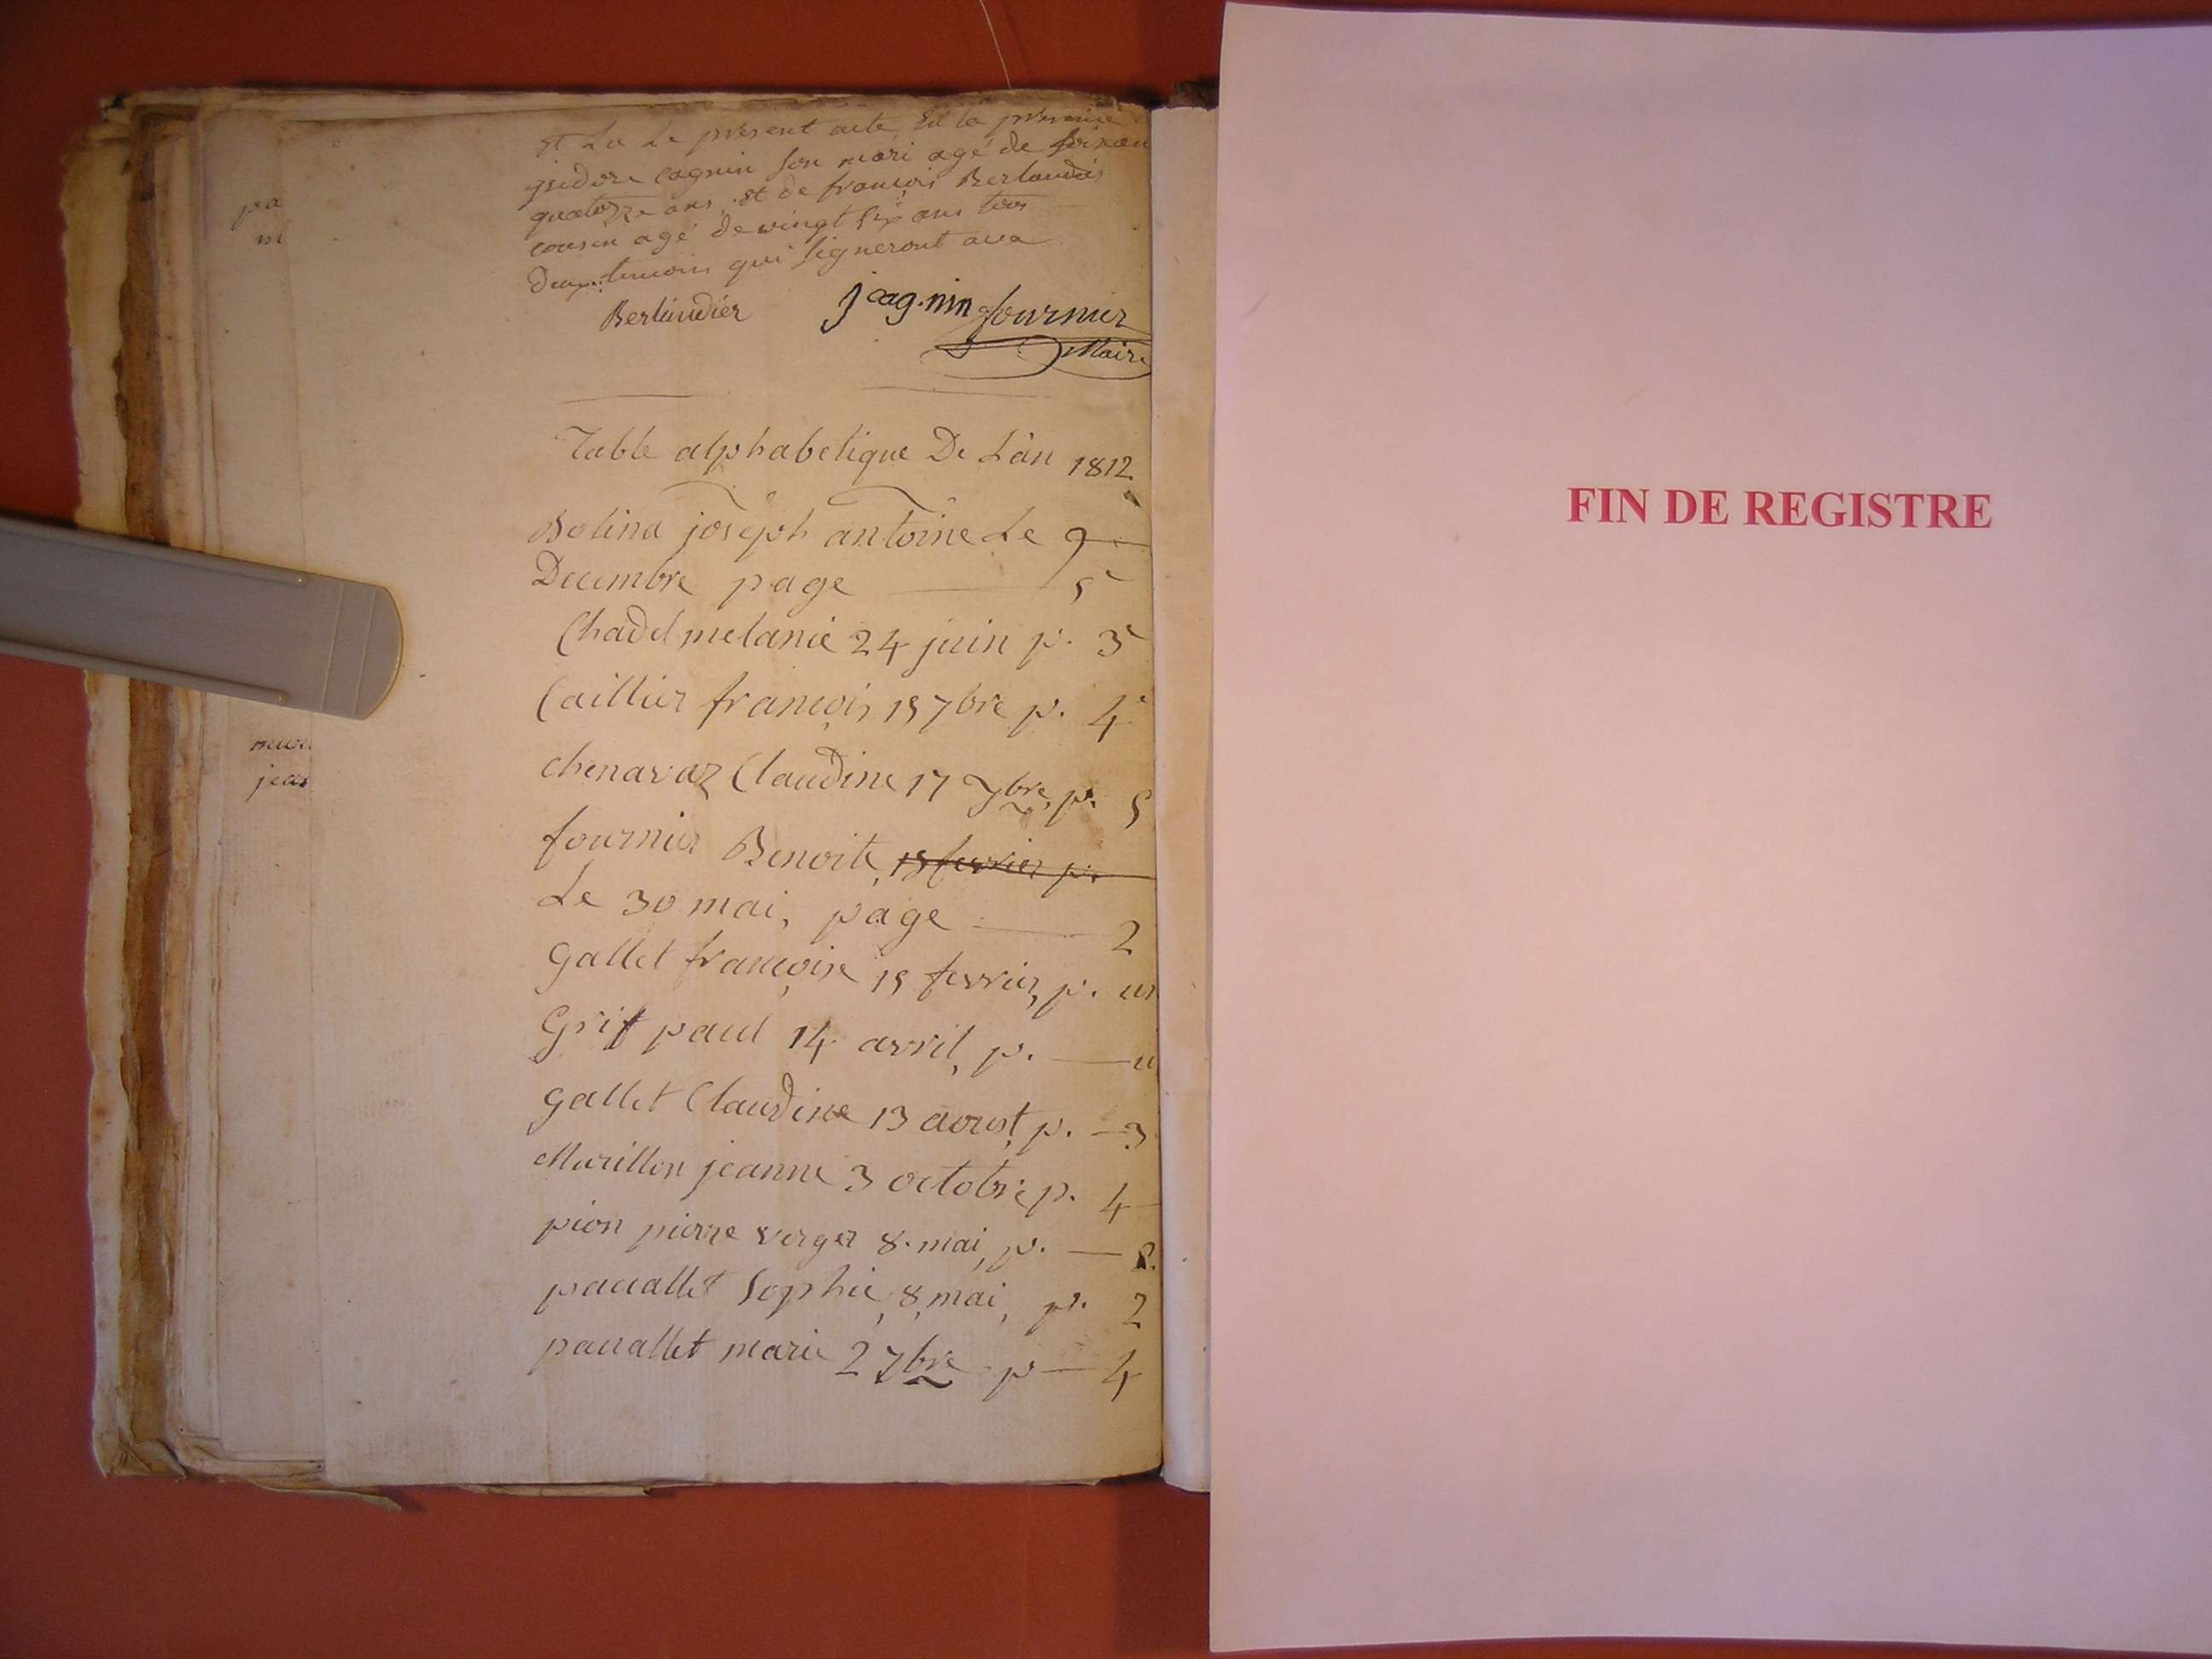 pa
m
et Lu Le present acte, En la presence
isidore Cagnin son mari agé de soixan
quatorze ans, et de francois Berlandier
cousin agé de vingt six ans tous
Deux temoins qui signeront avec
Berlandier J cagnin fournier
Maire
Table alphabetique De L'an 1812
Bolina joseph antoine Le 9
Decembre page 5
Chadel melanie 24 juin p. 3
Caillier francois 15 7bre p. 4
chenavaz Claudine 17 9bre, p. 5
fournier Benoite, 15 fevrier p.
Le 30 mai, page 2
Gallet francoise 15 fevrier, p. un
Grit paul 14 avril, p. u
gallet Claudine 13 aoust, p. 3
Murillon jeanne 3 octobre p. 4
pion pierre verger 8. mai, p. 2.
pacallet Sophie, 8, mai, p. 2
pacallet marie 2 7bre p 4
jean
FIN DE REGISTRE